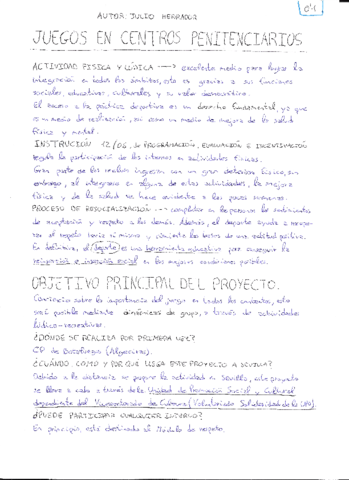 AUTOR JULIO HERRADOR
JUEGOS EN CENTROS PENITENCIARIOS
ACTIVIDAD FISICA Y LÚDICA ---> excelente medio para lograr la
integración en todos los ámbitos, esto es gracias a sus funciones
sociales, educativas, culturales y su valor democrático.
El acceso a la práctica deportiva es un derecho fundamental, ya que
es un medio de realización, así como un medio de mejora de la salud
física y mental.
INSTRUCION 12/06, de PROGRAMACIÓN, EVALUACIÓN E INCENTIVACIÓN
regula la participación de los internos en actividades físicas.
Gran parte de los reclusos ingresan con un gran deterioro físico, sin
embargo, al integrarse en alguna de estas actividades, la mejora
física y de la salud se hace evidente a los pocos meses.
PROCESO DE RESOCIALIZACIÓN --- completar en la persona los sentimientos
de aceptación y respeto a los demás. Además, el deporte ayuda a
el respeto hacia sí mismo y mantiene las bases de una actitud positiva.
En definitiva, el deporte es una herramienta educativa para conseguir la
reinserción e inserción social en las mejores condiciones posibles.
OBJETIVO PRINCIPAL DEL PROYECTO.
Concienciar sobre la importancia del juego en todos los contextos, esto
será posible mediante dinámicas de grupo, a través de actividades
lúdico-recreativas.
¿DONDE SE REALIZA POR PRIMERA VEZ?
CP de Botafuegos (Algeciras).
¿CUÁNDO, COMO Y POR QUÉ LLEGA ESTE PROYECTO A SEVILLA?
Debido a la distancia se propone la actividad en Sevilla, este proyecto
se lleva a cabo a través de la Unidad de Promoción Social y Cultural
dependiente del Vicerrectorado de Cultura (Voluntariado Solidaridad de la UPO).
¿PUEDE PARTICIPAR CUALQUIER INTERNO?
En principio, está destinado al Módulo de respeto.